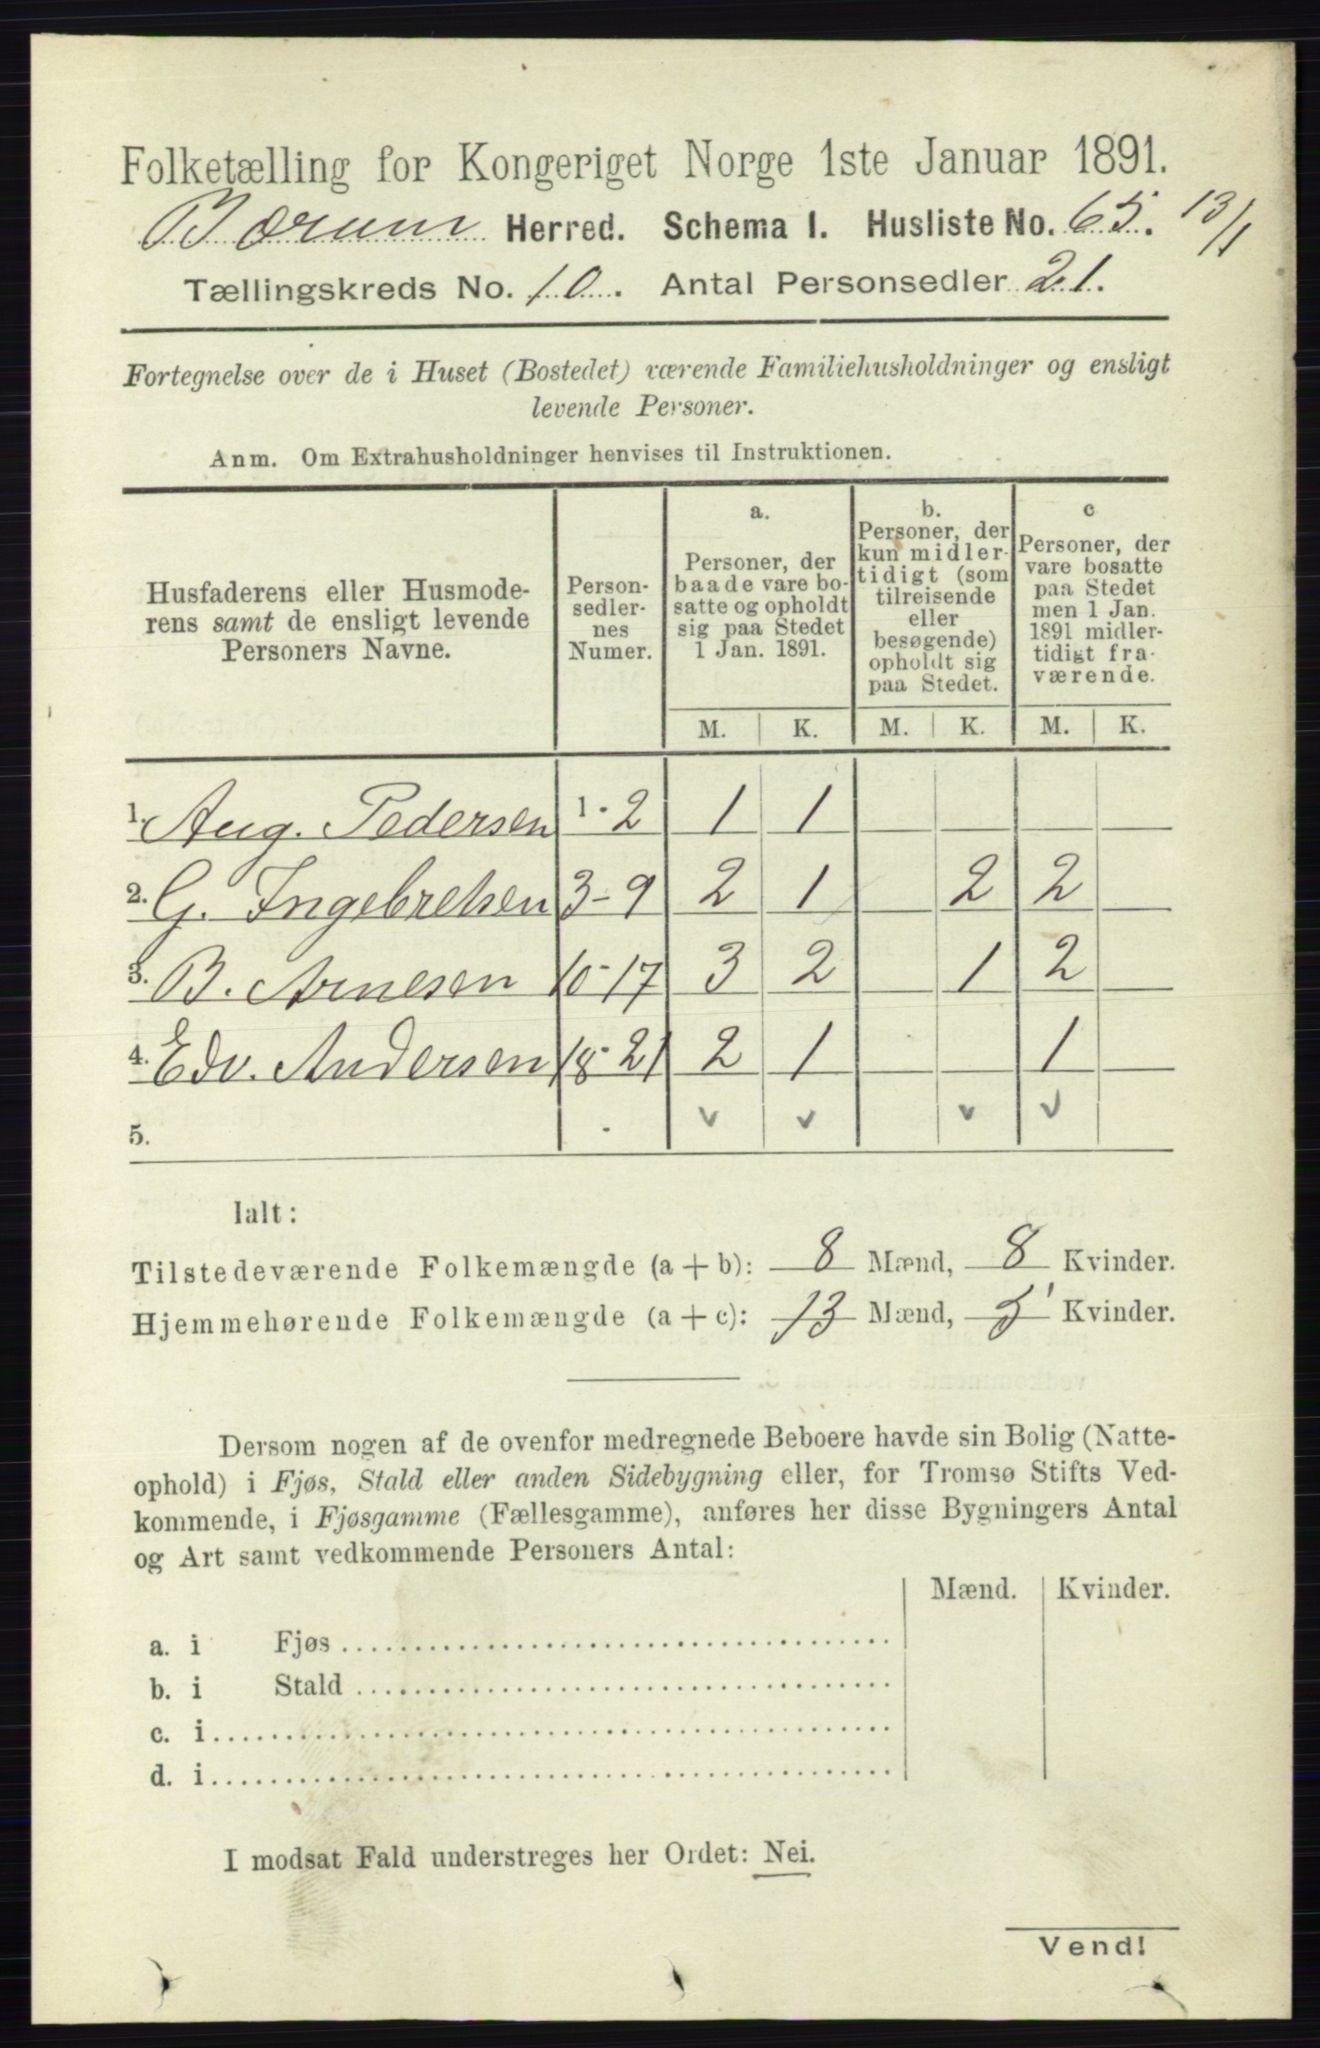 Folketælling for Kongeriget Norge 1ste Januar 1891.
Bærum Herred. Schema I. Husliste No. 65. 13/1
Tællingskreds No. 10. Antal Personsedler 21.
Fortegnelse over de i Huset (Bostedet) værende Familiehusholdninger og ensligt
levende Personer.
Anm. Om Extrahusholdninger henvises til Instruktionen.
Husfaderens eller Husmode-
rens samt de ensligt levende
Personers Navne.
Person-
sedler-
nes
Numer.
a.
Personer, der
baade vare bo-
satte og opholdt
sig paa Stedet
1 Jan. 1891.
b.
Personer, der
kun midler-
tidigt (som
tilreisende
eller
besøgende)
opholdt sig
paa Stedet.
c
Personer, der
vare bosatte
paa Stedet
men 1 Jan.
1891 midler-
tidigt fra-
værende.
M. K. M. K. M. K.
1. Aug. Pedersen 1-2 1 1
2. G. Ingebretsen 3-9 2 1 2 2
3. B. Arnesen 10-17 3 2 1 2
4. Edv. Andersen 18-21 2 1 1
5.
Ialt:
Tilstedeværende Folkemængde (a + b): 8 Mænd, 8 Kvinder.
Hjemmehørende Folkemængde (a + c): 13 Mænd, 5 Kvinder.
Dersom nogen af de ovenfor medregnede Beboere havde sin Bolig (Natte-
ophold) i Fjøs, Stald eller anden Sidebygning eller, for Tromsø Stifts Ved-
kommende, i Fjøsgamme (Fællesgamme), anføres her disse Bygningers Antal
og Art samt vedkommende Personers Antal:
Mænd. Kvinder.
a. i Fjøs
b. i Stald
c. i
d. i
I modsat Fald understreges her Ordet: Nei.
Vend!